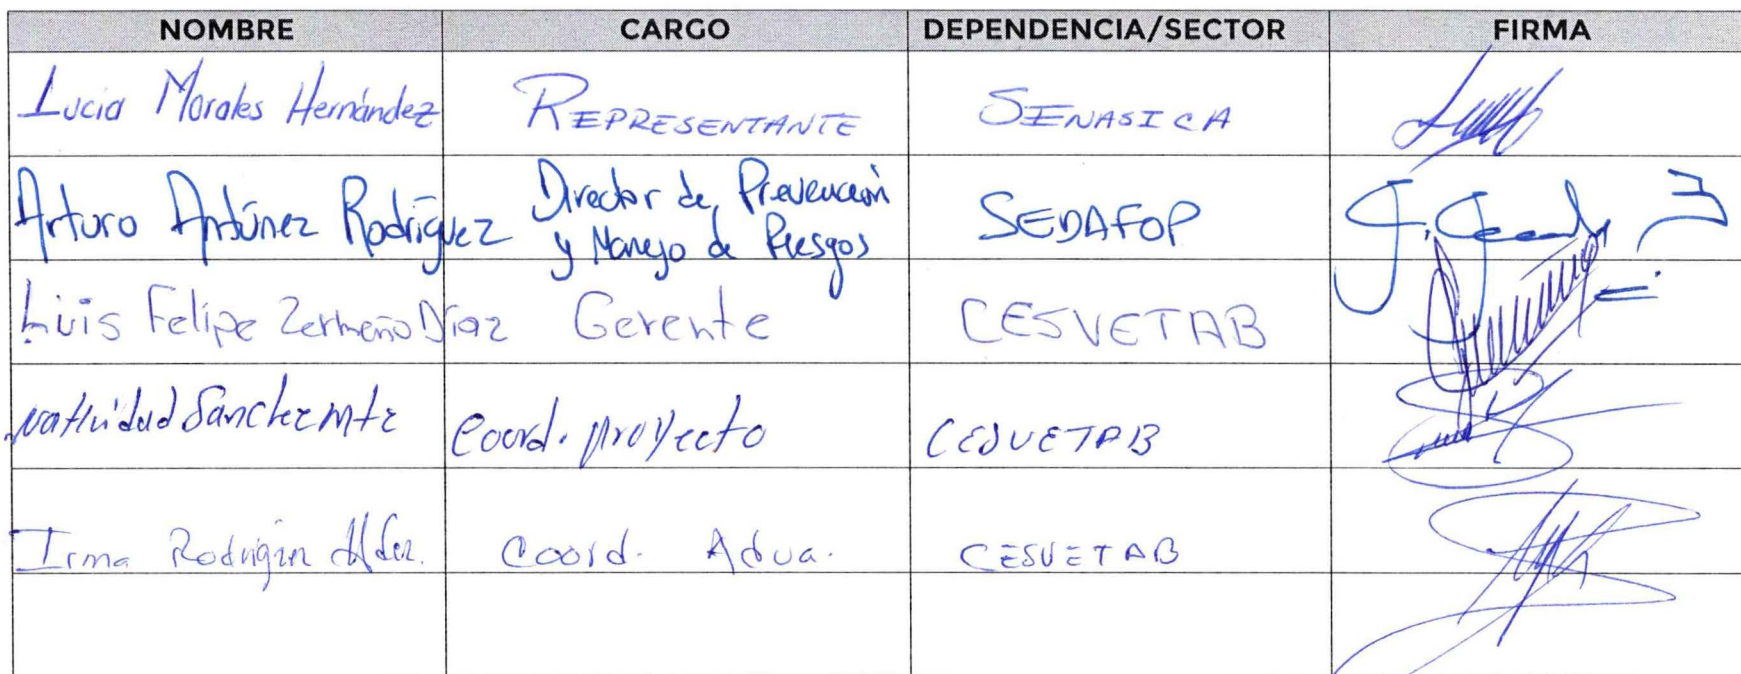 NOMBRE CARGO DEPENDENCIA/SECTOR FIRMA
Lucia Morales Hernández REPRESENTANTE SENASICA
Arturo Antúnez Rodríguez Director de Prevención y Manejo de Riesgos SEDAFOP
Luis Felipe Zermeño Díaz Gerente CESVETAB
Natividad Sánchez Mtz Coord. proyecto CESVETAB
Irma Rodríguez Coord. CESVETAB